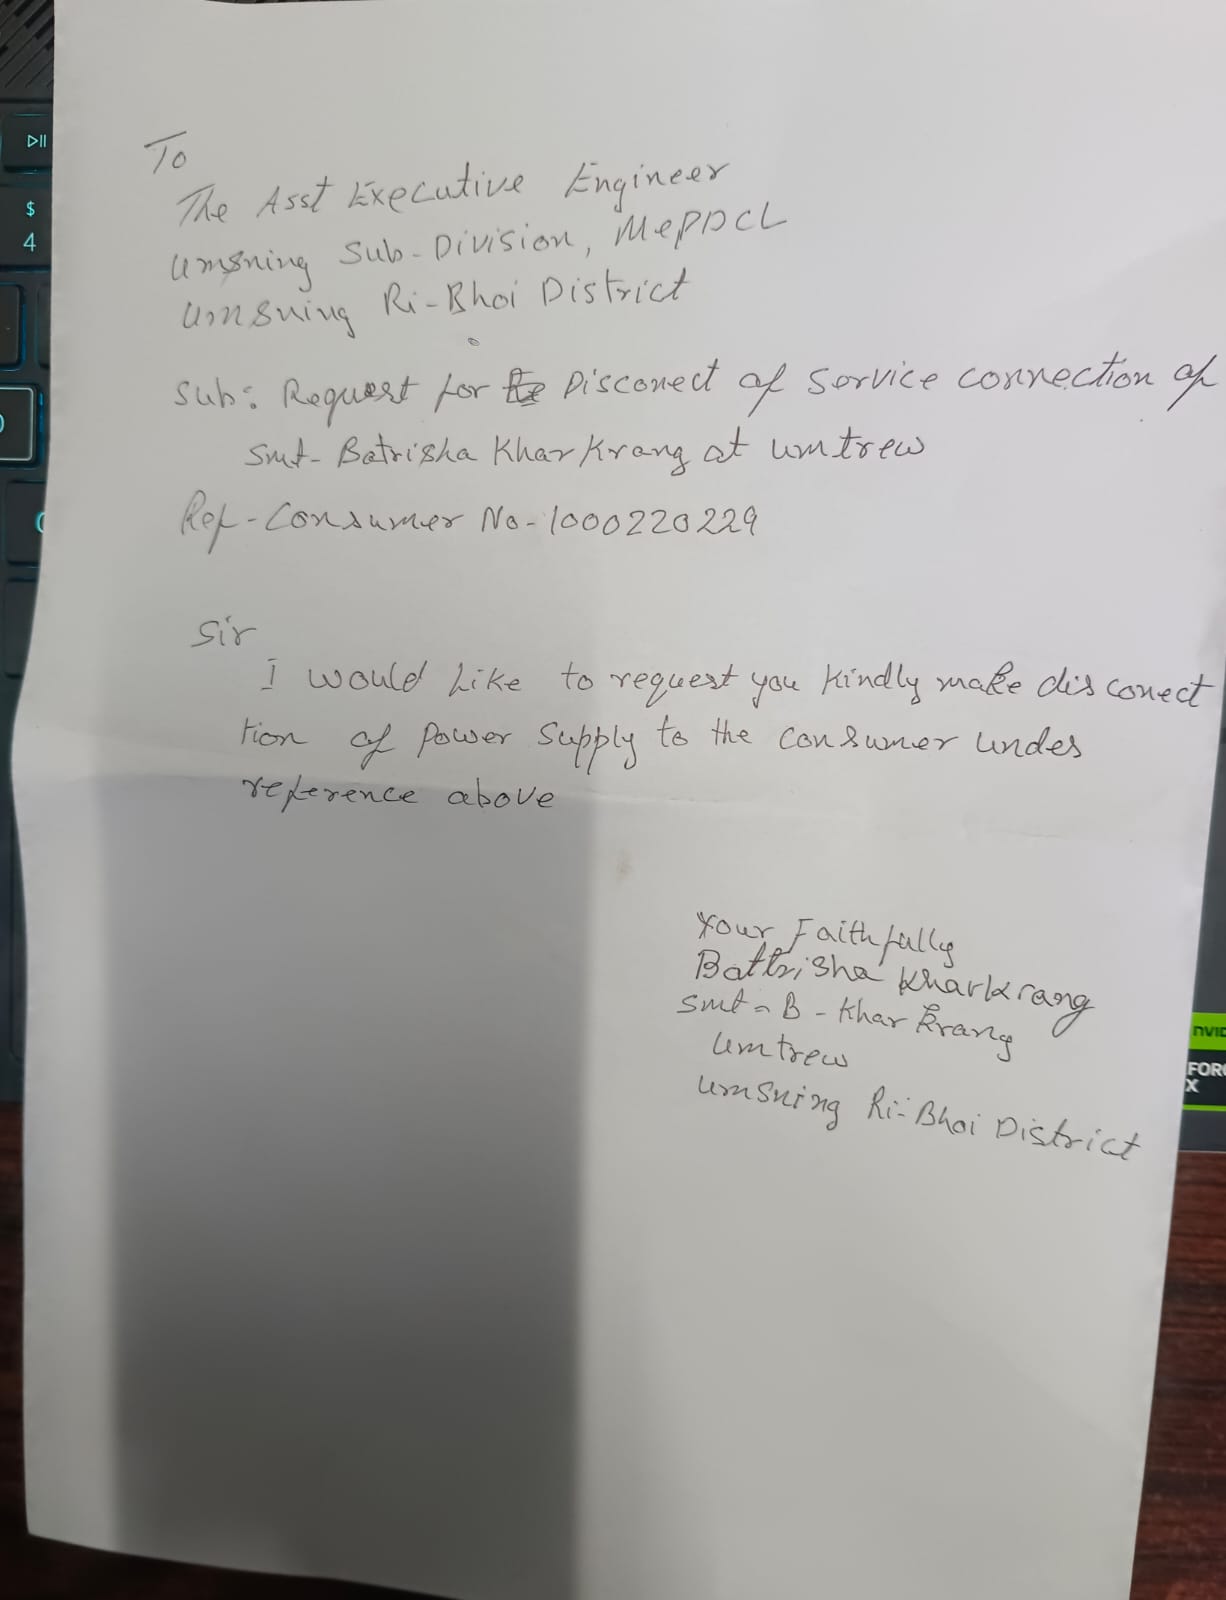 To
The Asst Executive Engineer
Umsning Sub-Division, MePDCL
Umsning Ri-Bhoi District
Sub: Request for Disconect of Service connection of
Smt- Batrisha Kharkrang at umtrew
Ref-Consumer No-1000220229
Sir
I would Like to request you kindly make disconect
tion of Power Supply to the consumer undes
reference above
Your Faithfully
Battrisha Kharkrang
Smt - B - Kharkrang
Umtrew
Umsning Ri-Bhoi District
$
4
NVID
FOR
X